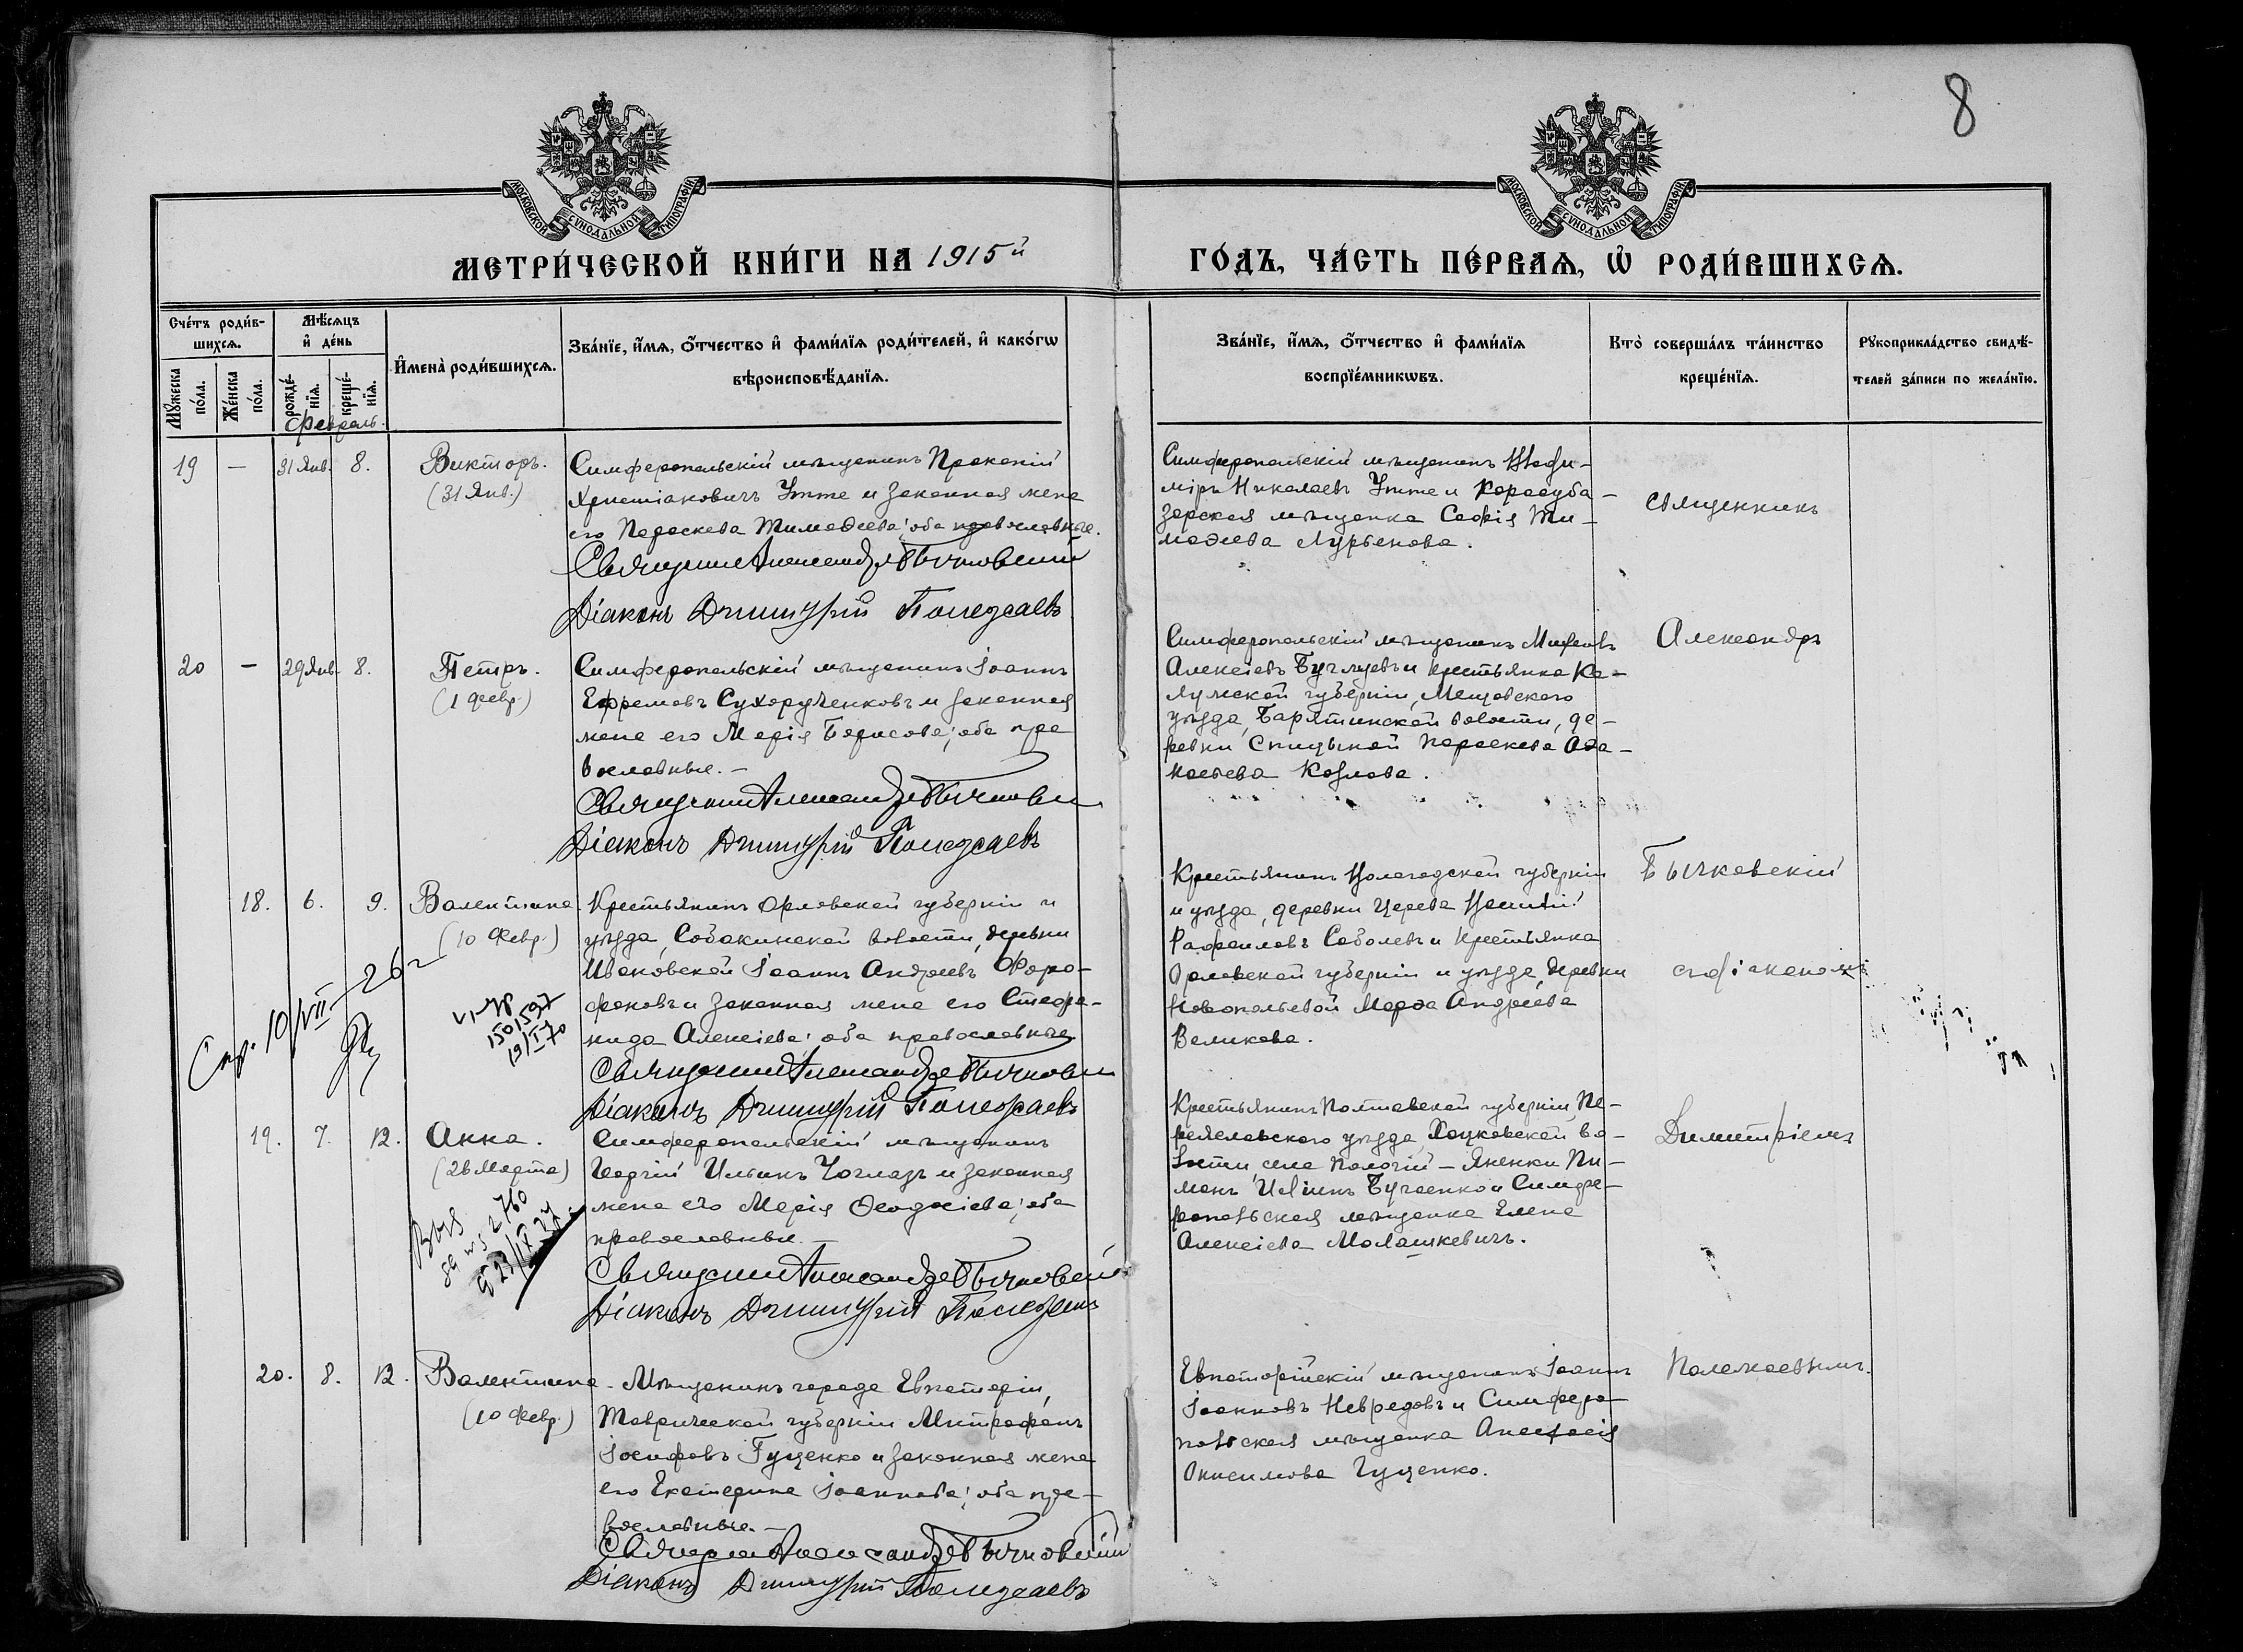 8
МОСКОВСКОЙ СѴНОДАЛЬНОЙ ТИПОГРАФІИ
МОСКОВСКОЙ СѴНОДАЛЬНОЙ ТИПОГРАФІИ
МЕТРИ́ЧЕСКОЙ КНИ́ГИ НА 1915й
ГО́ДЪ, ЧА́СТЬ ПЕ́РВАѦ, Ѽ РОДИ́ВШИХСѦ.
Сче́тъ роди́в-
шихсѧ.
Мѣ́сѧцъ
и҆ де́нь
Мꙋ́жеска по́ла.
Же́нска по́ла.
рожде́-
нїѧ.
креще́-
нїѧ.
И҆мена̀ роди́вшихсѧ.
Зва́нїе, и҆́мѧ, ѻ҆́тчество и҆ фами́лїѧ роди́телей, и҆ како́гѡ
вѣроисповѣ́данїѧ.
Зва́нїе, и҆́мѧ, ѻ҆́тчество и҆ фами́лїѧ
воспрїе́мникѡвъ.
Кто̀ соверша́лъ та́инство
креще́нїѧ.
Рꙋкоприкла́дство свидѣ́-
телей за́писи по жела́нїю.
Февраль.
19 — 31 Янв. 8. Викторъ.
(31 Янв.)
Симферопольскій мѣщанинъ Прокопій
Христіановичъ Утте и законная жена
его Параскева Тимоѳеева; оба православные.
Священникъ Александръ Бычковскій
Діаконъ Димитрій Полежаевъ
Симферопольскій мѣщанинъ Влади-
міръ Николаевъ Утте и Карасуба-
зарская мѣщанка Софія Ти-
моѳеева Лурьенова.
священникъ
20 — 29 Янв. 8. Петръ.
(1 февр.)
Симферопольскій мѣщанинъ Іоаннъ
Ефремовъ Сухорученковъ и законная
жена его Марія Борисова; оба пра
вославные. —
Священникъ Александръ Бычковскій
Діаконъ Димитрій Полежаевъ
Симферопольскій мѣщанинъ
Алексіевъ и крестьянка Ка-
лужской губерніи, Мещовскаго
уѣзда, Барятинской волости, де-
ревни Спицыной Параскева Аѳа-
насьева Козлова.
Александръ
18. 6. 9. Валентина.
(10 Февр.)
Крестьянинъ Орловской губерніи и
уѣзда, Собакинской волости, деревни
Ивановской Іоаннъ Андреевъ Форо-
фоновъ и законная жена его Стефа-
нида Алексіева; оба православные
Священникъ Александръ Бычковскій
Діаконъ Димитрій Полежаевъ
Крестьянинъ Вологодской губерніи
и уѣзда, деревни Василій
Рафаиловъ Соболевъ и крестьянка
Орловской губерніи и уѣзда, деревни
Марѳа Андреева
Великова.
Бычковскій
съ діакономъ
150597
19/I-70
19. 7. 12. Анна.
(26 Марта)
Симферопольскій мѣщанинъ
Георгій Ильинъ Чоглазъ и законная
жена его Марія Ѳеодосіева; оба
православные. —
Священникъ Александръ Бычковскій
Діаконъ Димитрій Полежаевъ
Крестьянинъ Полтавской губерніи, Пе-
реяславскаго уѣзда, Хоцковской во-
лости, села Пологій — Яненки Пи-
менъ Бугаенко и Симфе-
ропольская мѣщанка Елена
Алексіева Малашкевичъ.
Димитріемъ
20. 8. 12. Валентина
(10 Февр.)
Мѣщанинъ города Евпаторіи,
Таврической губерніи Митрофанъ
Іосифовъ Гущенко и законная жена
его Екатерина Іоаннова; оба пра-
вославные. —
Священникъ Александръ Бычковскій
Діаконъ Димитрій Полежаевъ
Евпаторійскій мѣщанинъ Іоаннъ
Іоанновъ Невредовъ и Симферо-
польская мѣщанка Анастасія
Онисимова Гущенко.
Полежаевымъ.